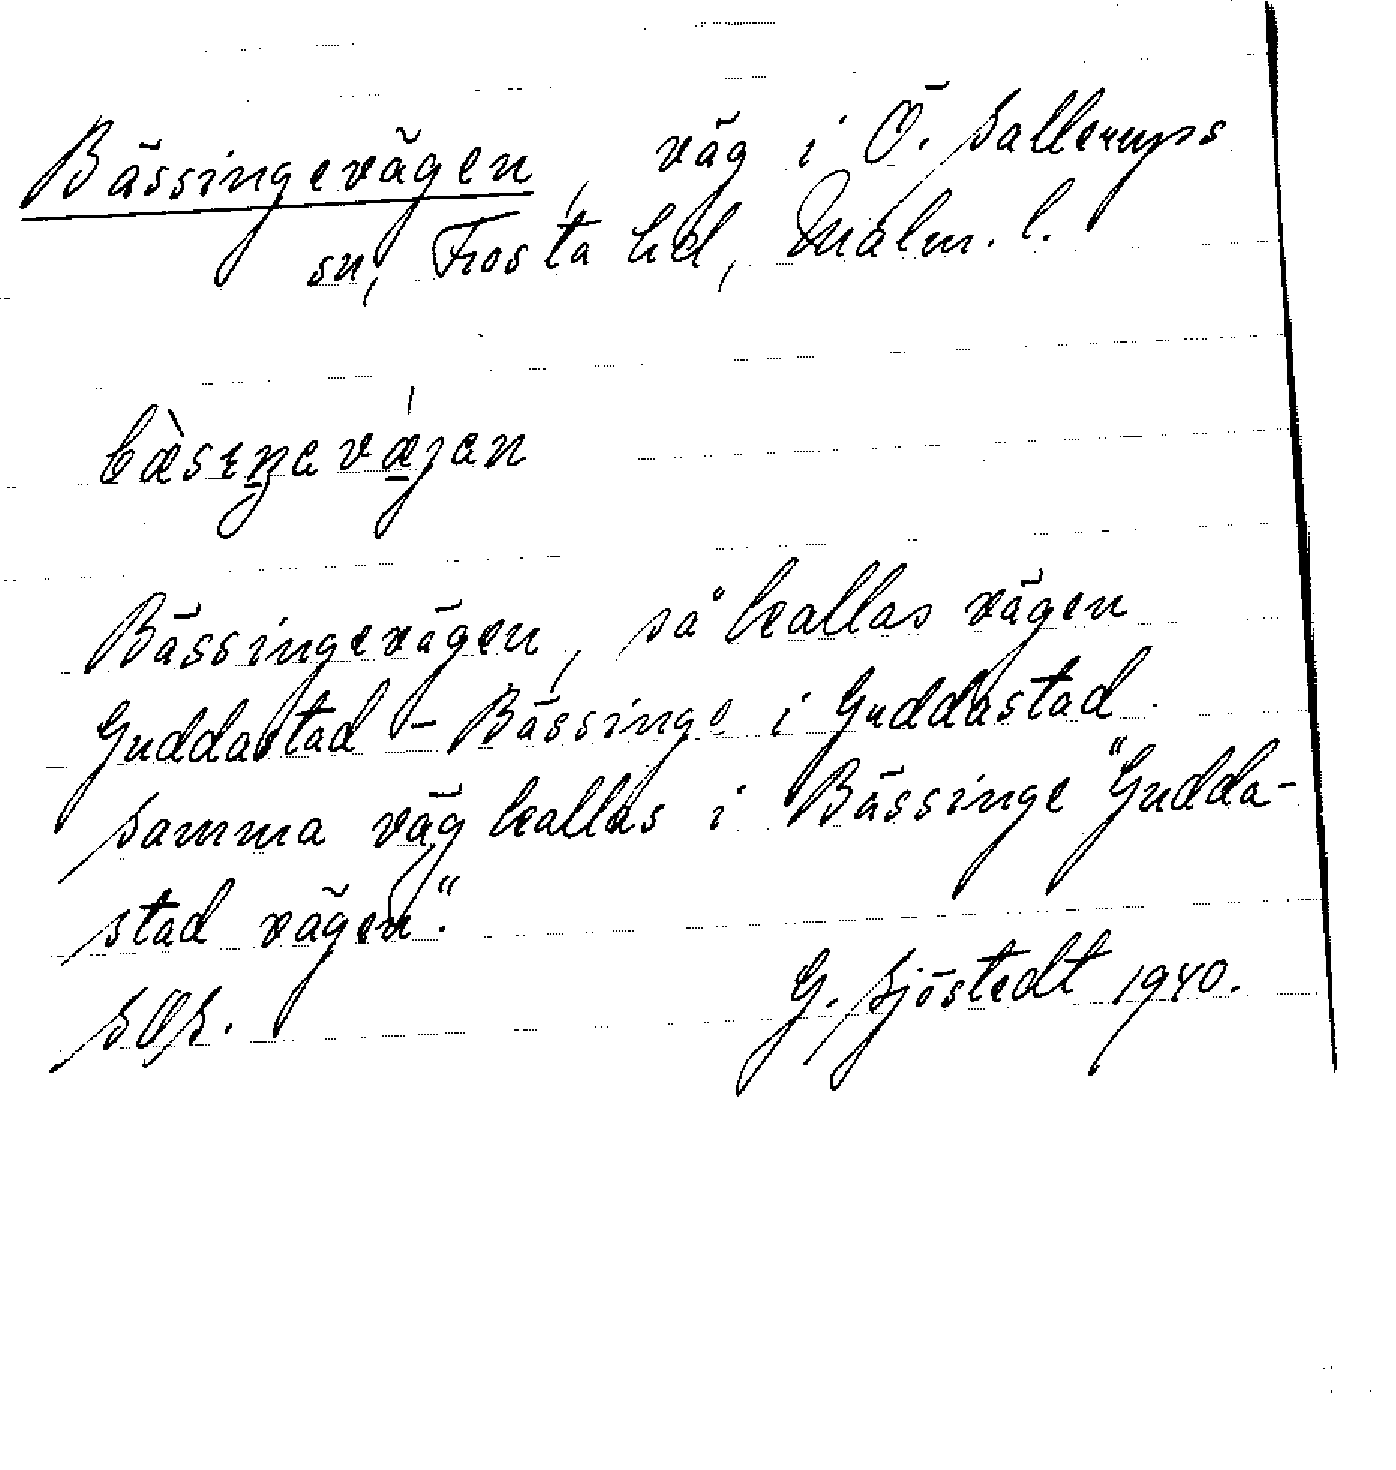 Bässingevägen, väg i Ö. Sallerups
sn, Frosta hd, Malm. l.
bæ̀sıŋevǽjen
Bässingevägen, så kallas vägen
Guddastad - Bässinge i Guddastad.
Samma väg kallas i Bässinge "Gudda-
stad vägen".
G. Sjöstedt 1940.